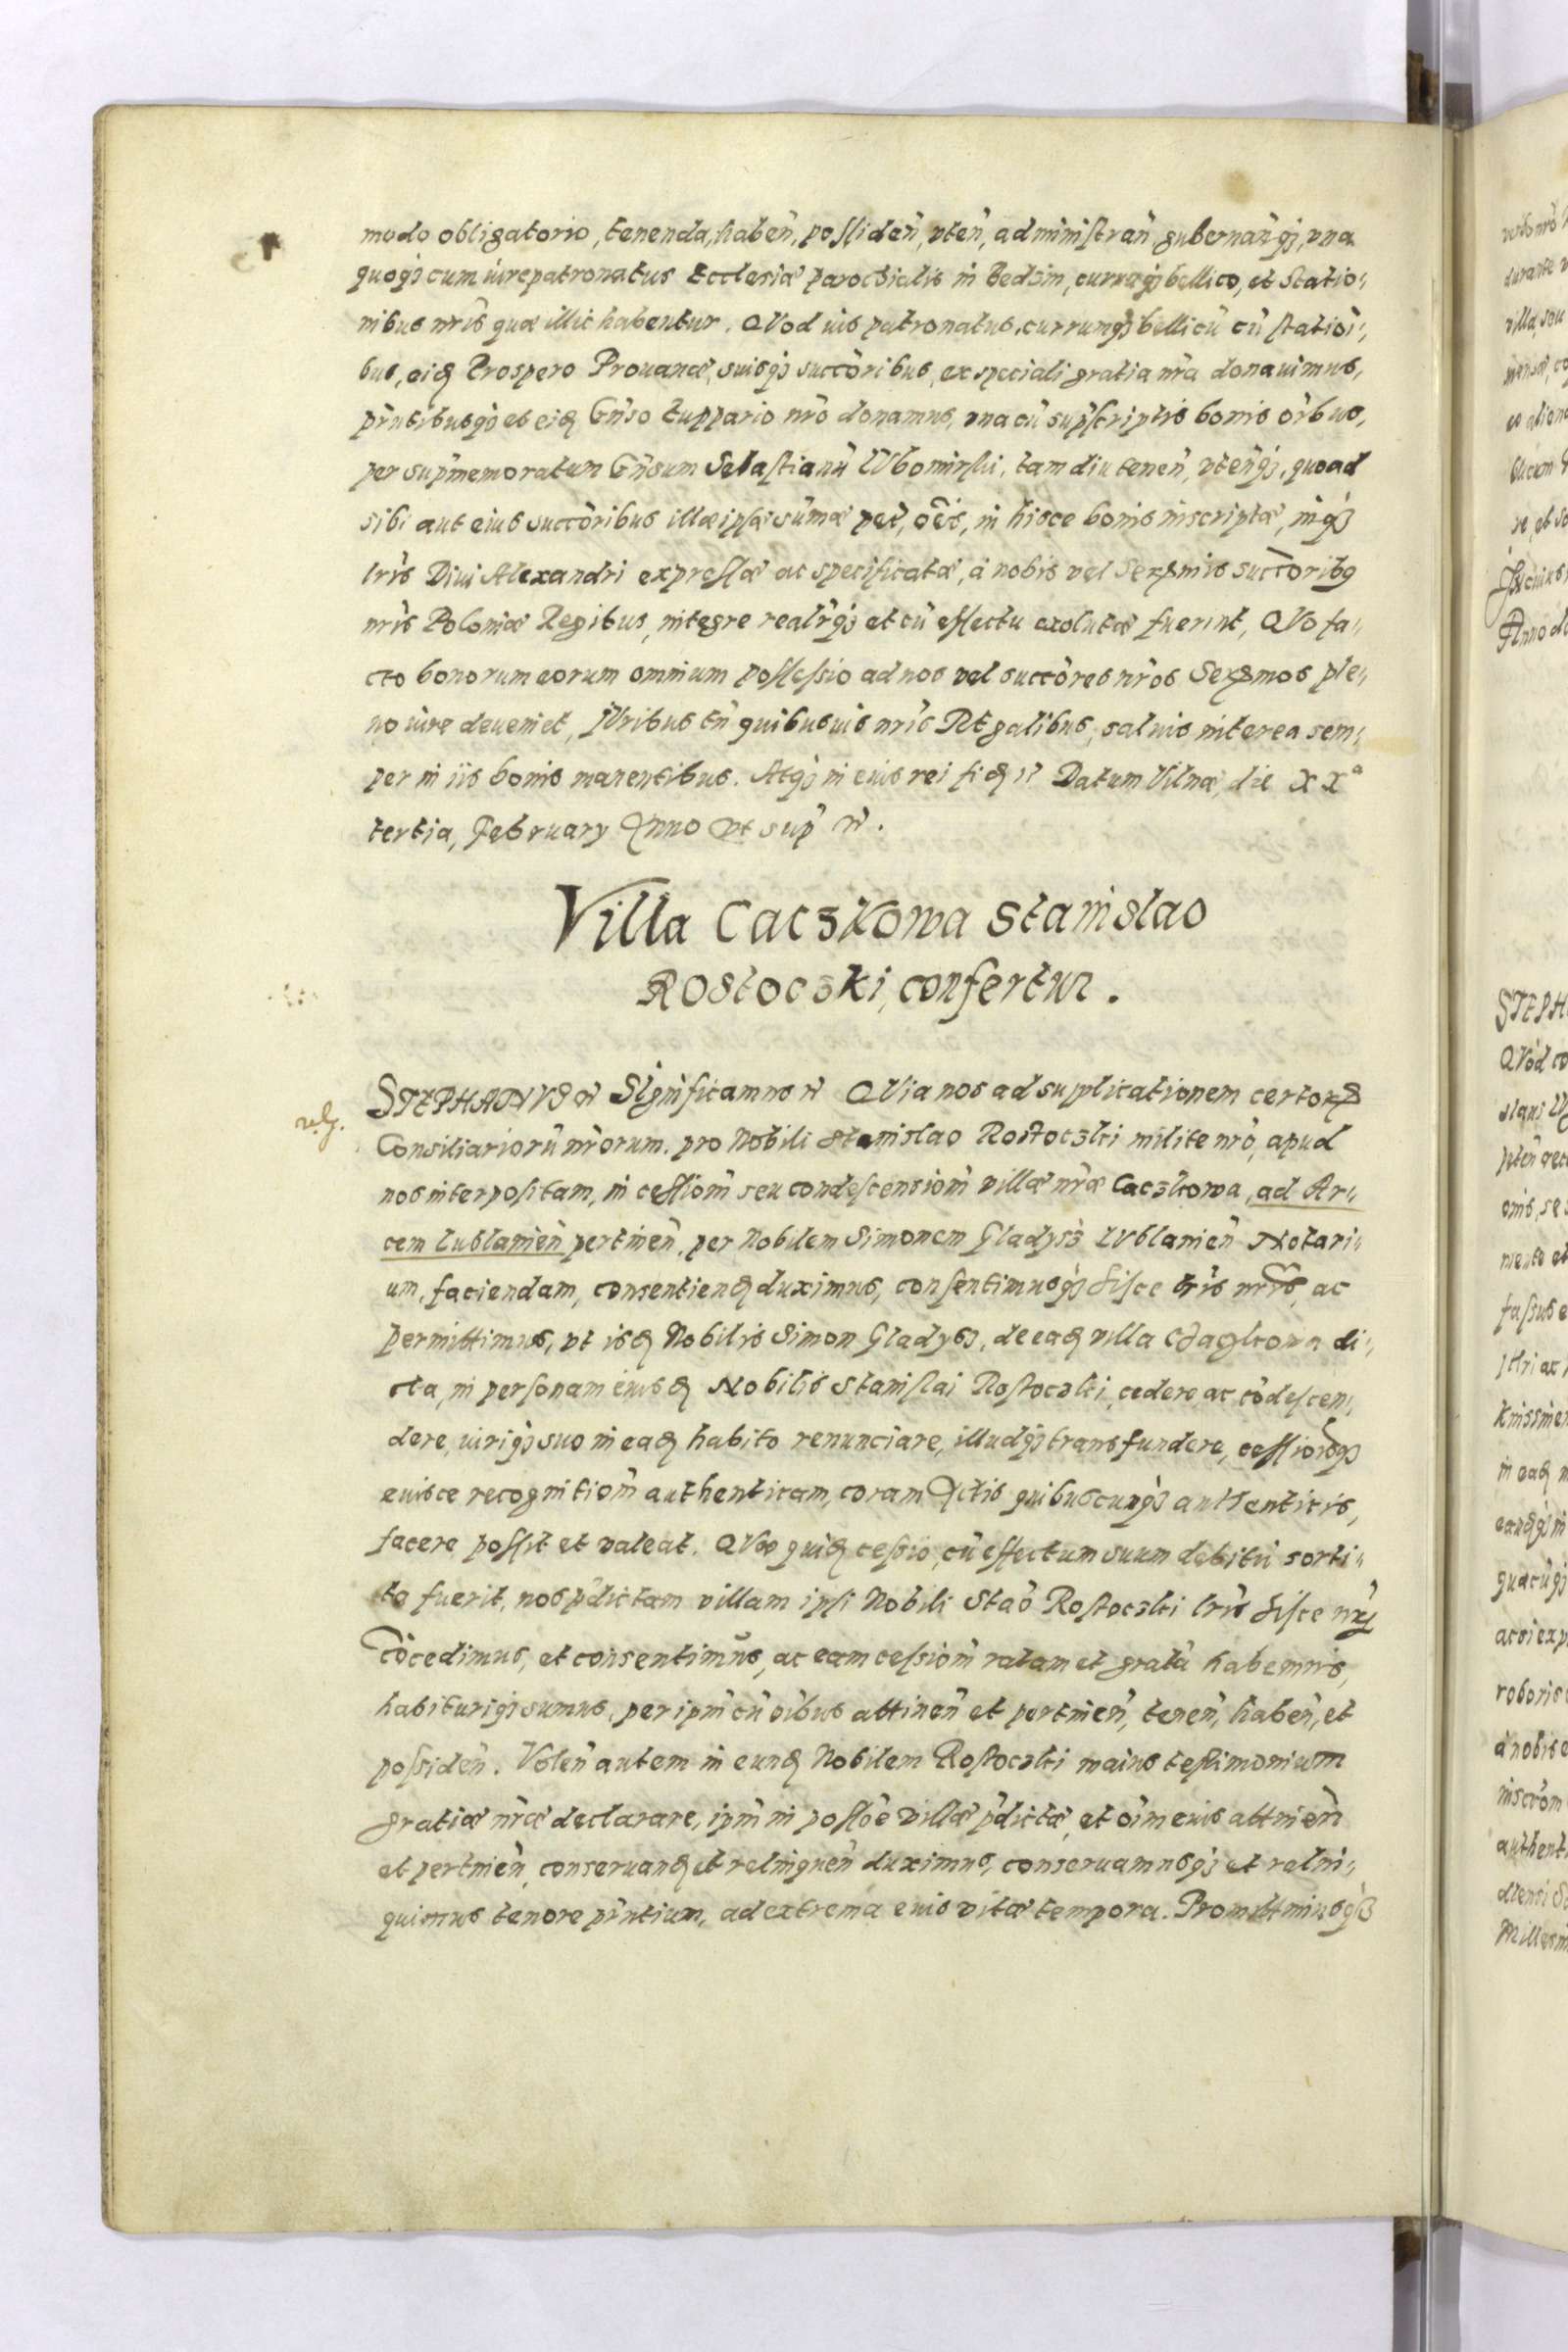 modo obligatorio, tenenda, haben̄, possiden̄, vten̄, administran̄ gubernan̄q₃, vna
quoq₃ cum iure patronatus Ecclesiæ parochialis in Bedzin, curruq₃ bellico, et statio⸗
nibus nr̄is quæ illic habentur. QVod ius patronatus, currumq₃ bellicū cū statiōi⸗
bus, eiđ Prospero Prouanæ, suisq₃ succōribus, ex speciali gratia nr̄a donauimus,
pn̄tibusq₃ et eiđ Gn̄so Zuppario nr̄o donamus, vna cū supˢcriptis bonis oībus,
per supmemoratum Gn̄sum Sebastianū LVbomirski, tam diu tenen̄, vten̄q₃, quoad
sibi aut eius succōribus illæ ipsæ sūmæ pec̄, oēs, in hisce bonis inscriptæ, inq₃
lr̄is Diui Alexandri expressæ ac specificatæ, à nobis vel Serꝝmis succōribꝰ
nr̄is Poloniæ Regibus, integre realr̄q₃ et cū effectu exolutæ fuerint, QVo fa⸗
cto bonorum eorum omnium possessio ad nos vel succōres nr̄os Serꝝmos ple⸗
no iure deueniet, JVribus tn̄ quibusuis nr̄is Regalibus, saluis interea sem⸗
per in iis bonis manentibus. Atq₃ in eius rei fiđ rc̄ Datum Vilnæ, die XXᵃ
tertia, February Anno vt sup̄ rc̄.
Villa Caczkowa Stanislao
Rostoczki, confertur.
relḡ.
STEPHANVS rc̄ Significamus rc̄ QVia nos ad supplicationem certorꝝ
Consiliariorū nr̄orum. pro Nobili Stanislao Rostoczki milite nr̄o, apud
nos interpositam, in cessiom̄ seu condescensiom̄ villæ nr̄æ Caczkowa, ad Ar⸗
cem Lublanien̄ pertinen̄, per Nobilem Simonem Gladysz LVblanien̄ Notari⸗
um, faciendam, consentienđ duximus, consentimusq₃ hisce lr̄is nr̄is, ac
permittimus, vt isđ Nobilis Simon Gladysz, de eađ villa di⸗
cta, in personam eiusđ Nobilis Stanislai Rostoczki, cedere, ac cōdescen⸗
dere, iuriq₃ suo in eađ habito renunciare, illudq₃ transfundere, cessiōisq₃
euisce recognitiom̄ authenticam, coram Actis quibuscunq₃ authenticis,
facere possit et valeat. QVæ quiđ cessio, cū effectum suum debitū sorti⸗
ta fuerit, nos p̄dictam villam ipsi Nobili Staō Rostoczki lr̄is hisce nr̄is
cōcedimus, et consentimus, ac eam cessiom̄ ratam et gratā habemus,
habituriq₃ sumus, per ipm̄ cū oībus attinen̄ et pertinen̄, tenen̄, haben̄, et
possiden̄. Volen̄ autem in eunđ Nobilem Rostoczki maius testimonium
gratiæ nr̄æ declarare, ipm̄ in possōe villæ p̄dictæ, et oīm eius attinen̄
et pertinen̄, conseruanđ et relinquen̄ duximus, conseruamusq₃ et relin⸗
quimus tenore pn̄tium, ad extrema euis vitæ tempora. Promittimusq₃